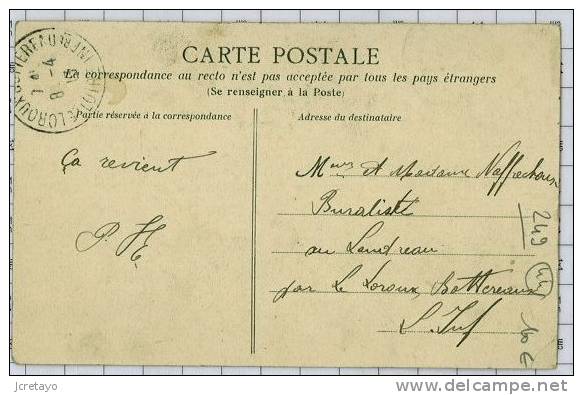 CARTE POSTALE
La correspondance au recto n'est pas acceptée par tous les pays étrangers
(Se renseigner à la Poste)
Partie réservée à la correspondance
Adresse du destinataire
Ça revient
P. H
Mour et Madame
Buraliste
au Landreau
par Le Loroux Bottereaux
L. Inf
249
44
10 €
LE LOROUX-BOTTEREAU
LOIRE INFRE
8 - 4
jcretayo
delcampe.net